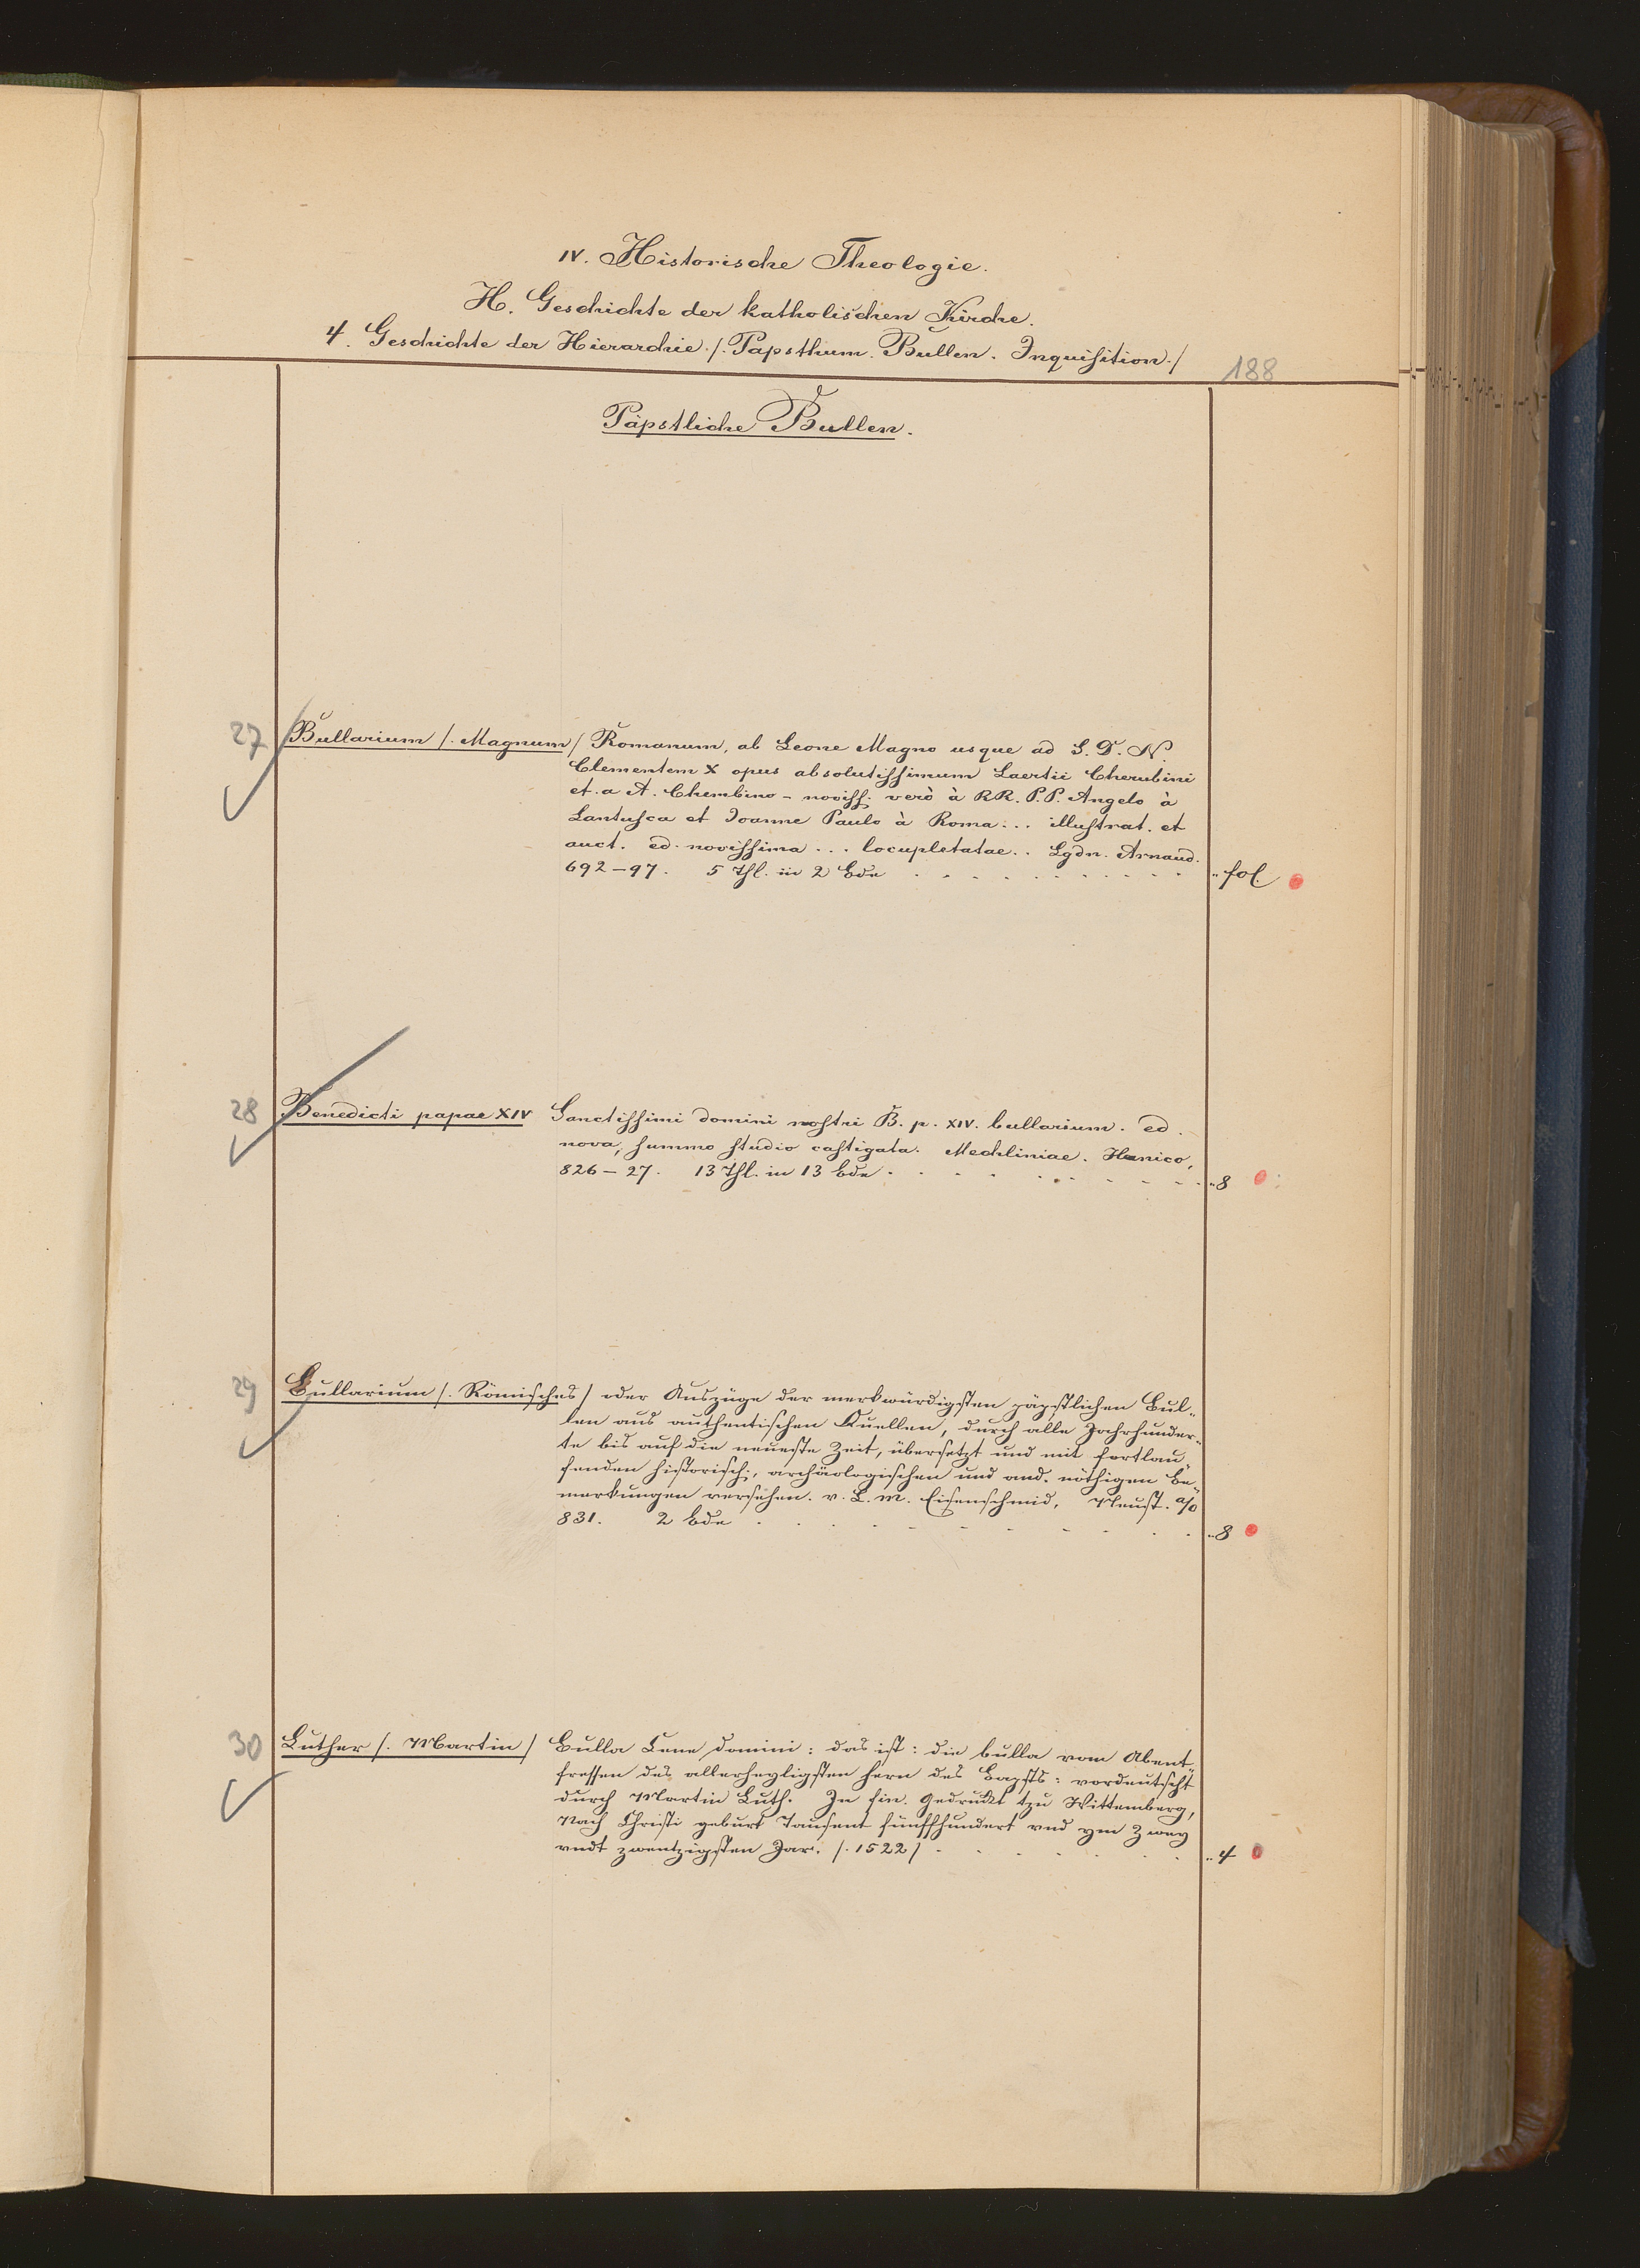 IV. Historische Theologie.
H. Geschichte der katholischen Kirche.
4. Geschichte der Hierarchie. /. Papsthum. Bullen. Inquisition. /
188
Päpstliche Bullen.
27 Bullarium /. Magnum / Romanum, ab Leone Magno usque ad S. D. N.
Clementem X opus absolutissimum Laertii Cherubini
et. a A. Cherubino - noviss. verò à RR. P.P. Angelo à
Lantusca et Joanne Paulo à Roma... illustrat. et
auct. ed. novissima... locupletatae.. Lgdn. Arnaud.
692-97. 5 Thl. in 2 Bde " fol.
28 Benedicti papae XIV Sanctissimi domini nostri B. p. XIV. bullarium. ed.
nova, summo studio castigata. Mechliniae. Hanico,
826-27. 13 Thl. in 13 Bde " 8
29 Bullarium /. Römisches / oder Auszüge der merkwürdigsten päpstlichen Bul-
len aus authentischen Quellen, durch alle Jahrhunder-
te bis auf die neueste Zeit, übersetzt und mit fortlau-
fenden historisch., archäologischen und and. nöthigen Be-
merkungen versehen. v. L. M. Eisenschmid, Neust. a/O
831. 2 Bde " 8
30 Luther /. Martin / Bulla Cene domini: das ist: die bulla vom Abent-
fressen des allerheyligsten hern des Bapsts: vordeutscht
durch Martin Luth. In fin. Gedruckt tzu Wittemberg,
Nach Christi geburt Tausent fünffhundert vnd ym Zwey
vndt zwentzigsten Jar. /. 1522 / " 4